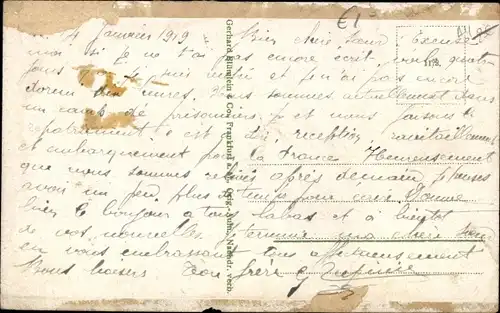 14 Janvier 1919 Bien chère Sœur Excuse
moi si je ne t'ai pas encore écrit, voici quatre
jours et je n'ai pas encore
dormi heures. Nous sommes actuellement dans
un camp de prisoniers et nous faisons le
rapatriement c est a dire, reception ravitaillement
et embarquement pour la France Heureusement
que nous sommes relevés après demain je pense
avoir un peu plus de temps pour écrire Donne
bien le bonjour a tous labas et a bientôt
de vos nouvelles je termine ma chère Sœur
en vous embrassant tous affectueusement
Bons baisers Ton frère
Gerhard Blümlein & Co., Frankfurt a. M. Orig.-Aufn. Nachdr. verb.
113.